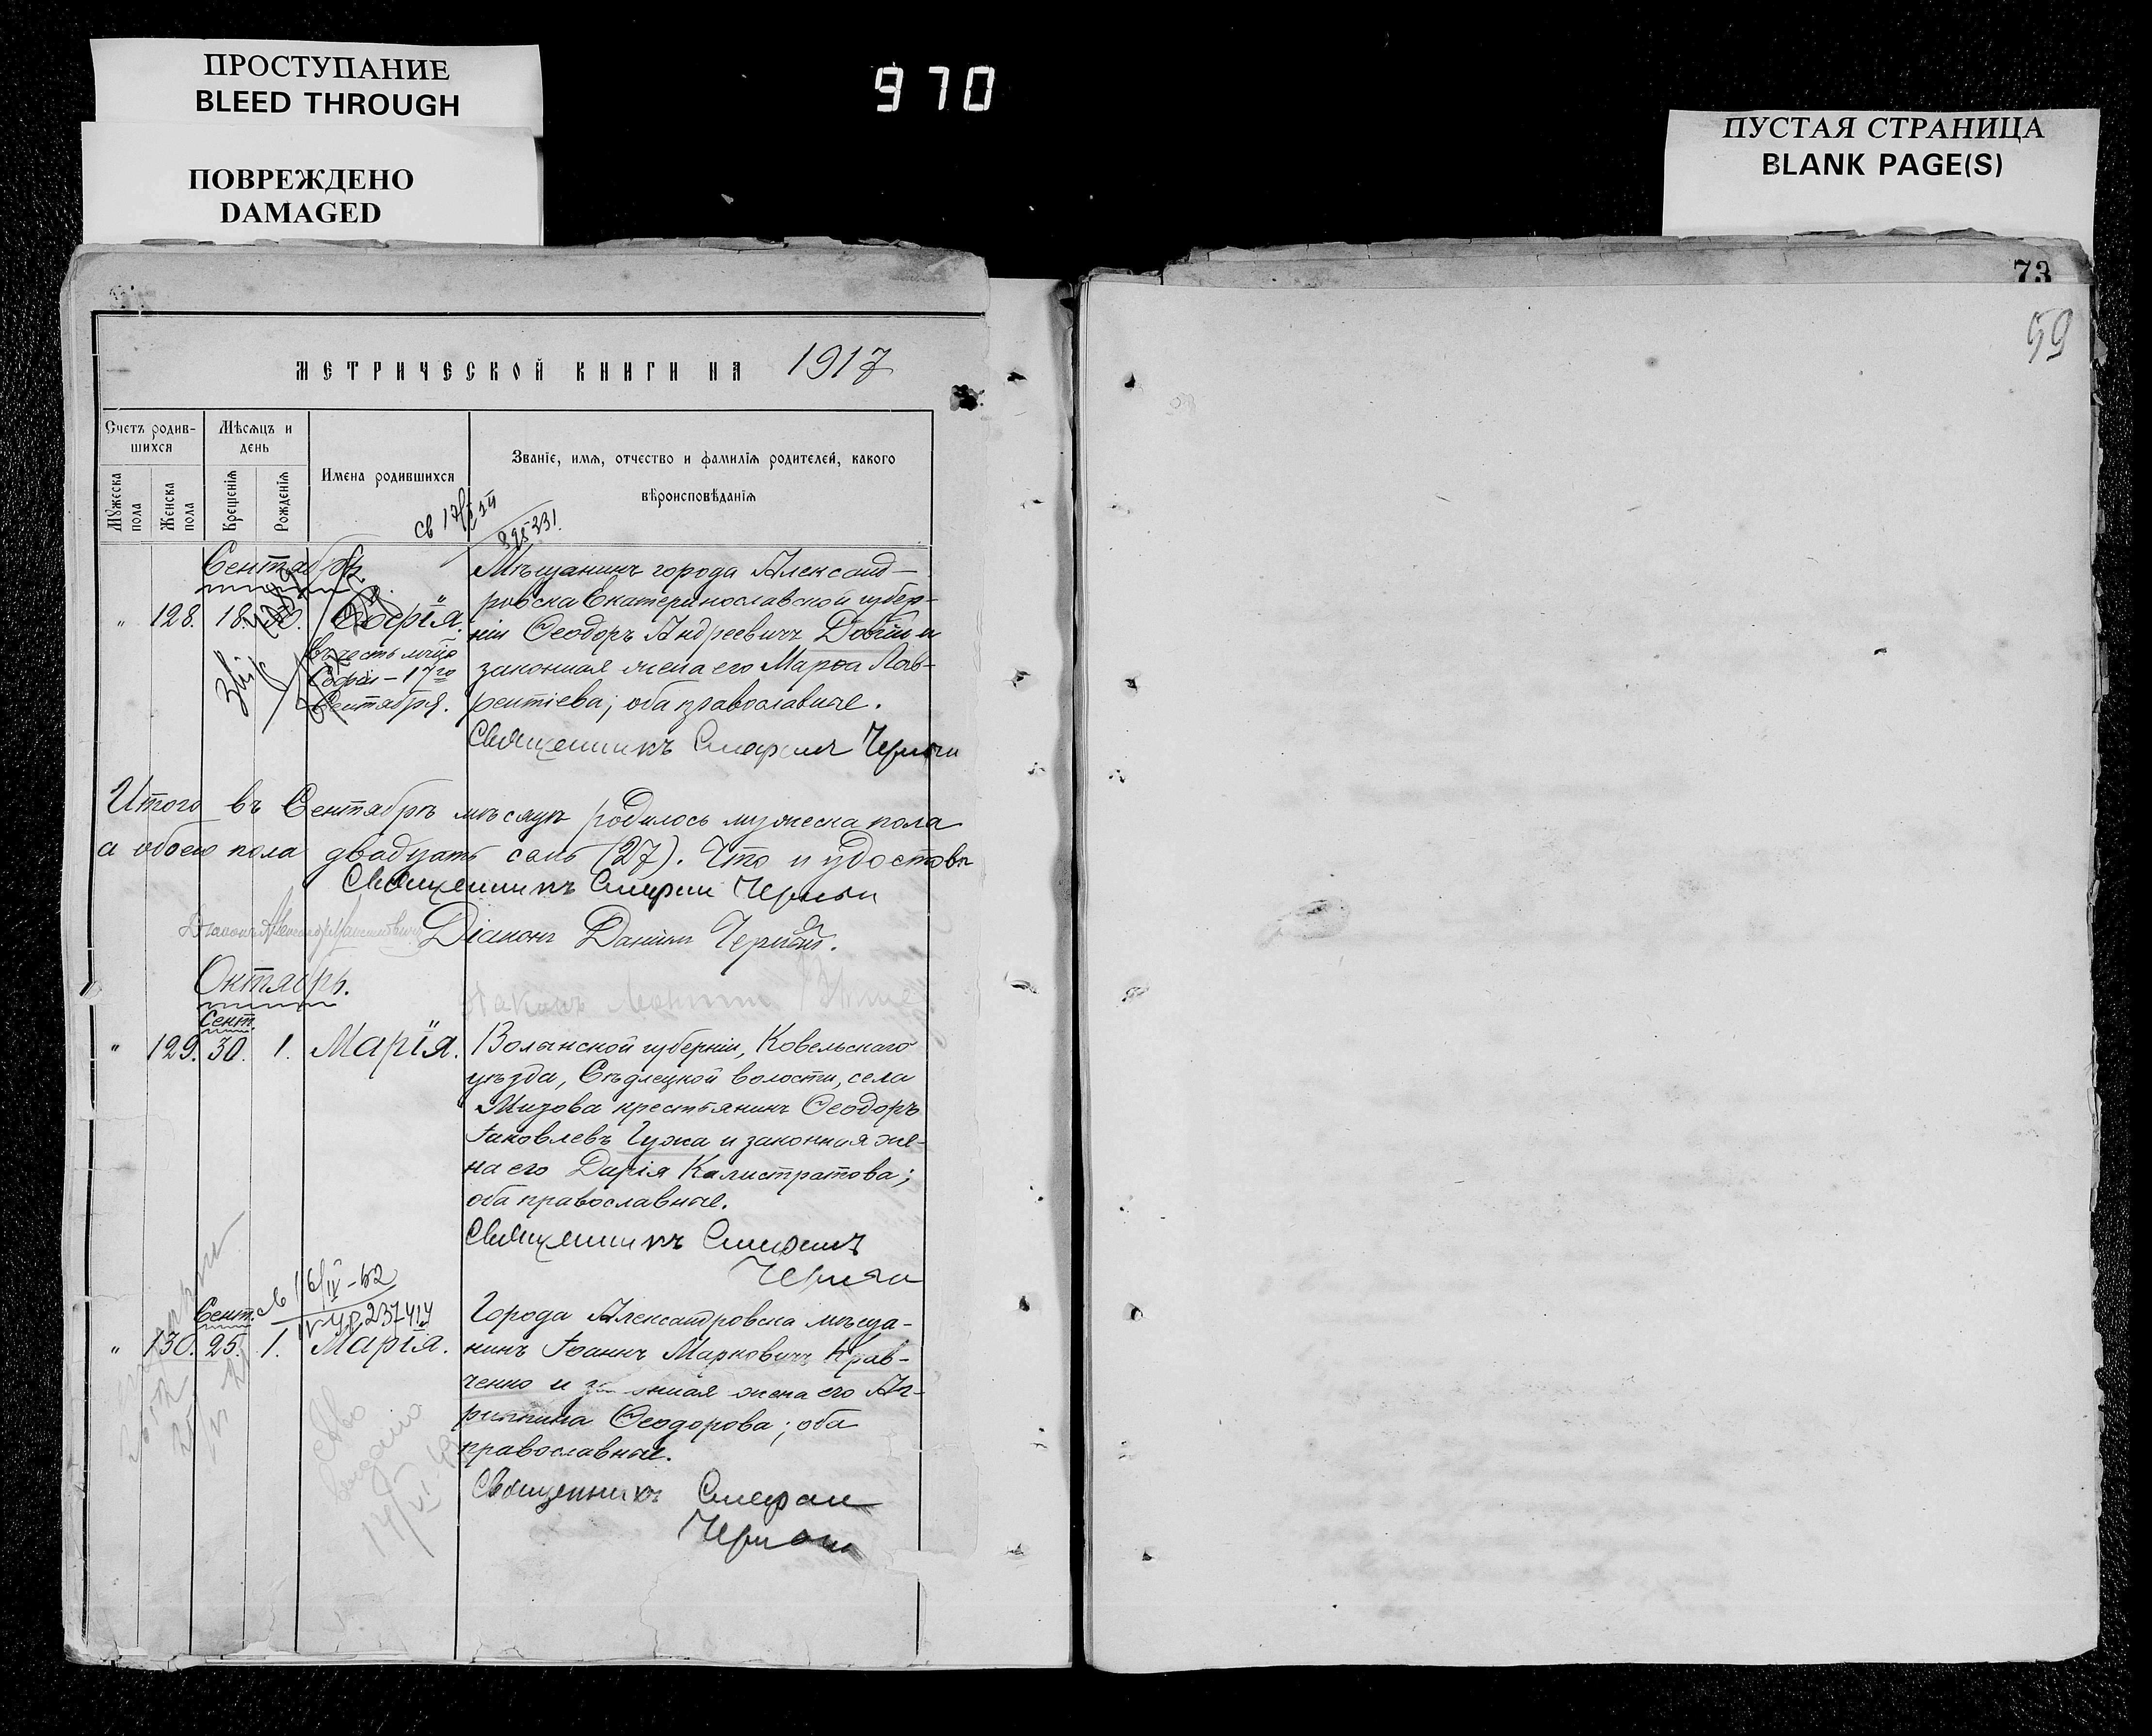 ПРОСТУПАНИЕ
BLEED THROUGH
ПОВРЕЖДЕНО
DAMAGED
970
ПУСТАЯ СТРАНИЦА
BLANK PAGE(S)
73
59
МЕТРИЧЕСКОЙ КНИГИ НА 1917
Счетъ родив-
шихся
Мужеска пола
Женска пола
Мѣсяцъ и
день
Крещенія
Рожденія
Имена родившихся
Званіе, имя, отчество и фамилія родителей, какого
вѣроисповѣданія
Сентябрь.
" 128. 18. Софія.
въ честь
Софіи – 17го
Сентября.
Мѣщанинъ города Александ-
ровска Екатеринославской губер-
ніи Ѳеодоръ Андреевичъ и
законная жена его Марѳа Лав-
рентіева; оба православные.
Священникъ Стефанъ
Итого въ Сентябрѣ мѣсяцѣ родилось мужеска пола
а обоего пола двадцать семь (27). Что и удостовѣ
Священникъ Стефанъ
Діаконъ Даніилъ
Октябрь.
Сент.
" 129. 30. 1. Марія.
Волынской губерніи, Ковельскаго
уѣзда, Сѣдлецкой волости, села
Мизова крестьянинъ Ѳеодоръ
Іаковлевъ Гужа и законная же-
на его Дарія Калистратова;
оба православные.
Священникъ Стефанъ
Сент.
" 130. 25. 1. Марія.
Города Александровска мѣща-
нинъ Іоаннъ Марковичъ Крав-
ченко и жена его Аг-
риппина Ѳеодорова; оба
православные.
Священникъ Стефан